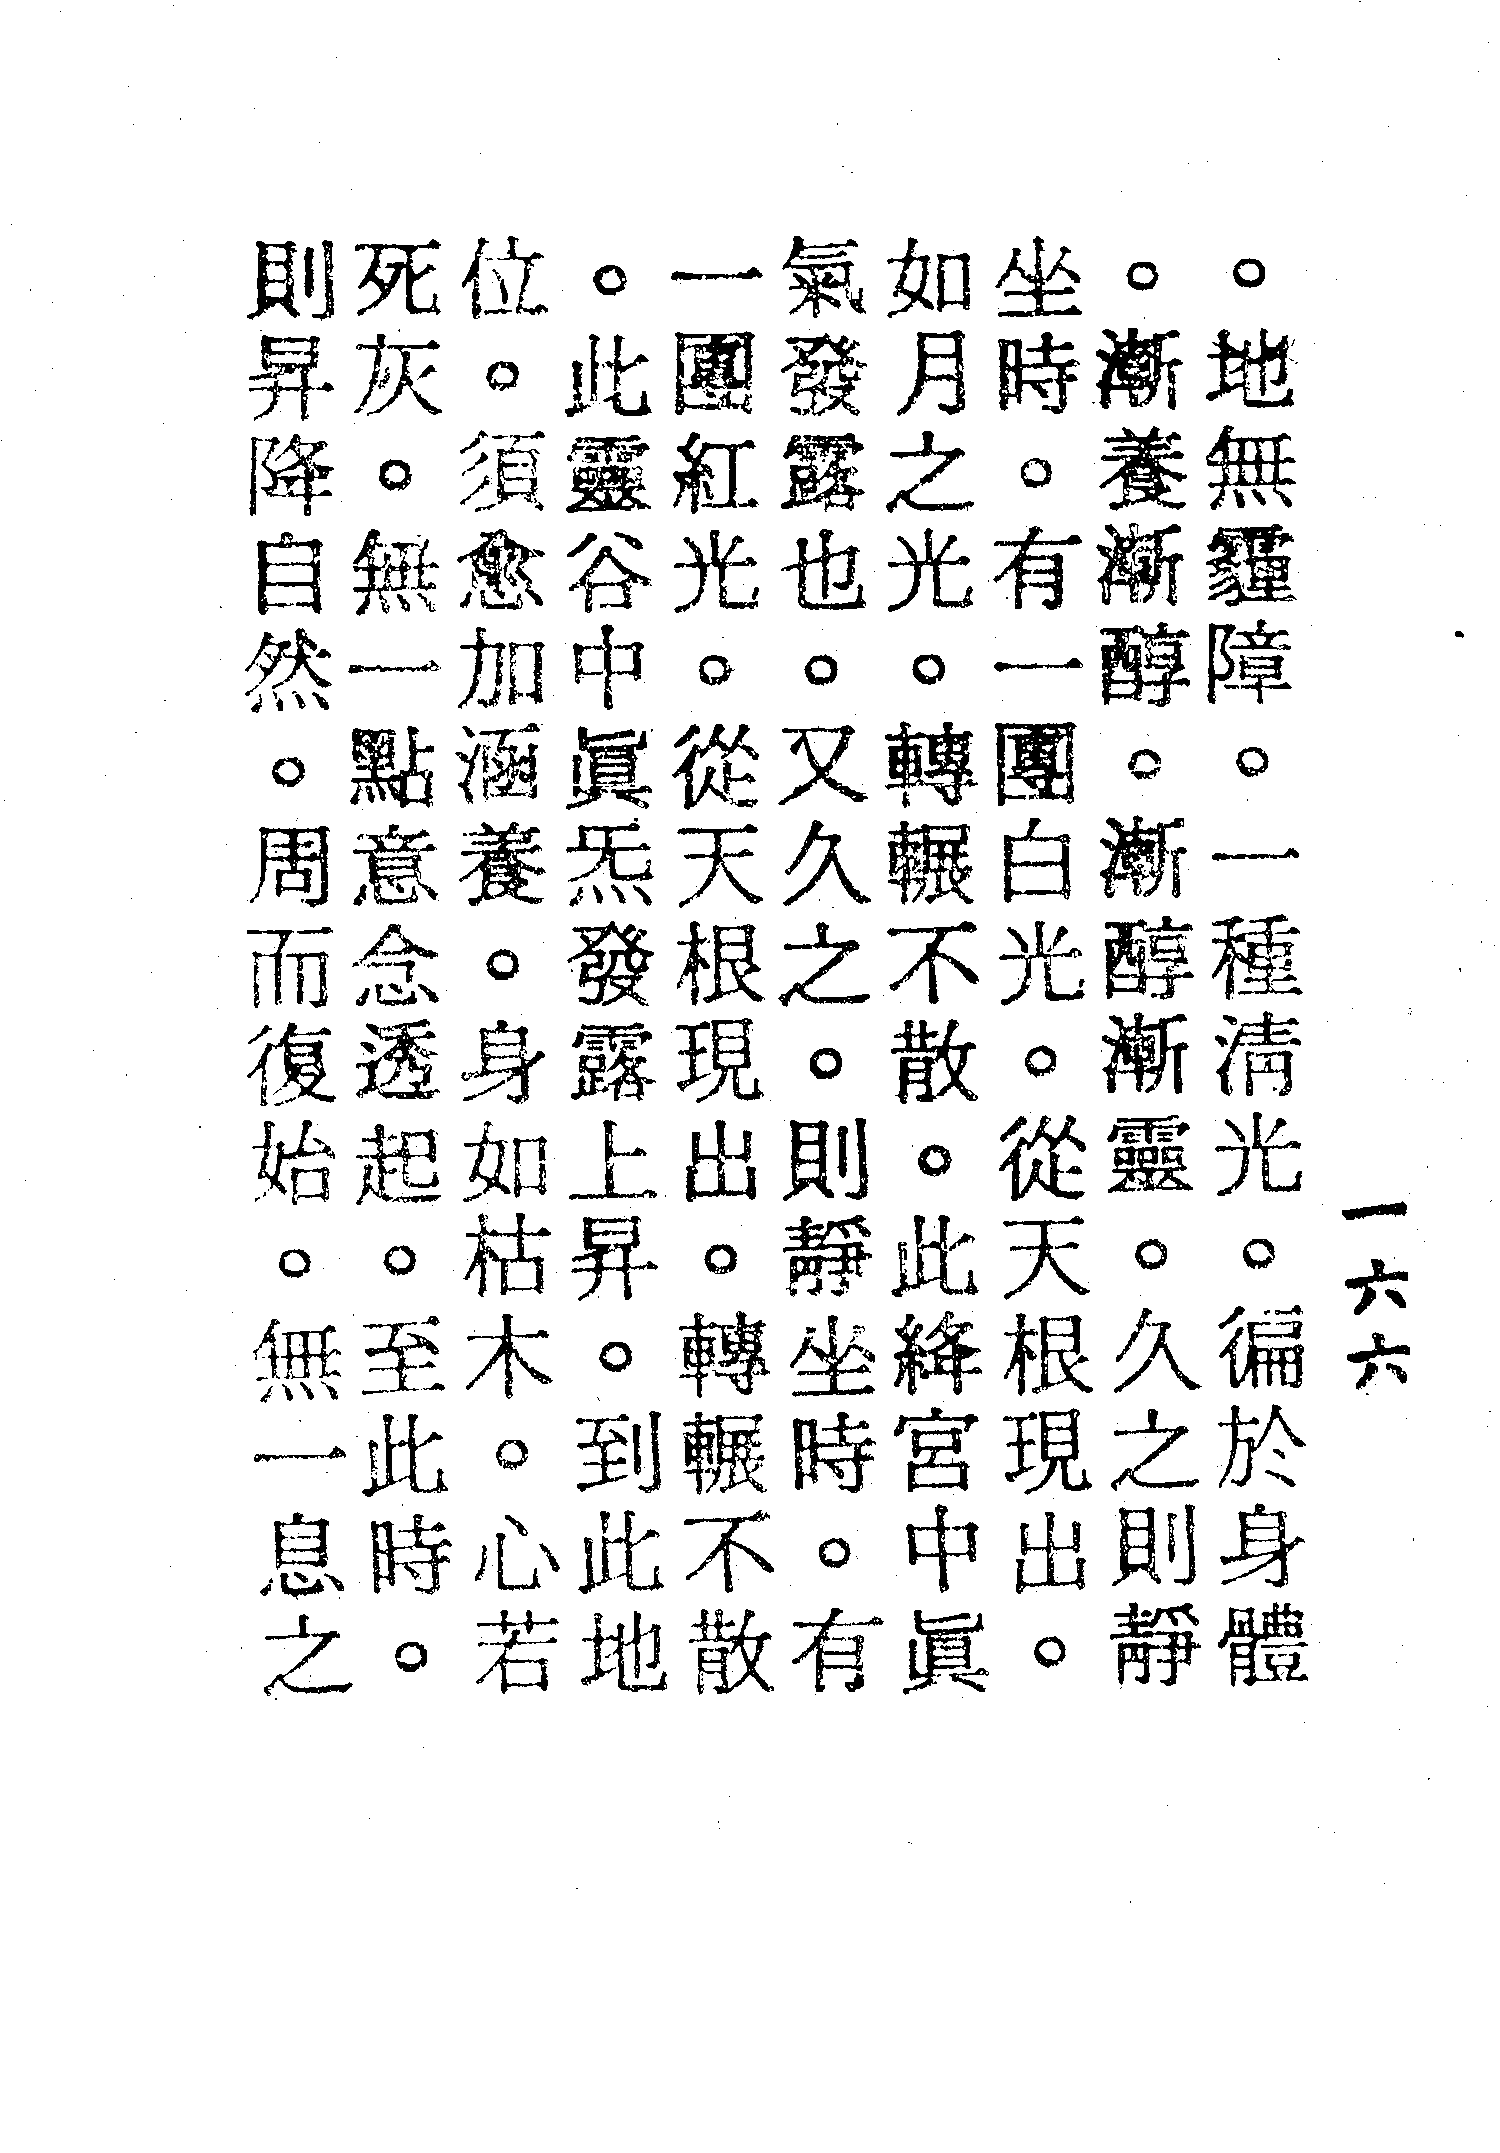 一六六
。地無霾障。一種淸光。徧於身體
。漸養漸醇。漸醇漸靈。久之則靜
坐時。有一團白光。從天根現出。
如月之光。轉輾不散。此絳宮中眞
氣發露也。又久之。則靜坐時。有
一團紅光。從天根現出。轉輾不散
。此靈谷中眞炁發露上昇。到此地
位。須愈加涵養。身如枯木。心若
死灰。無一點意念透起。至此時。
則昇降自然。周而復始。無一息之